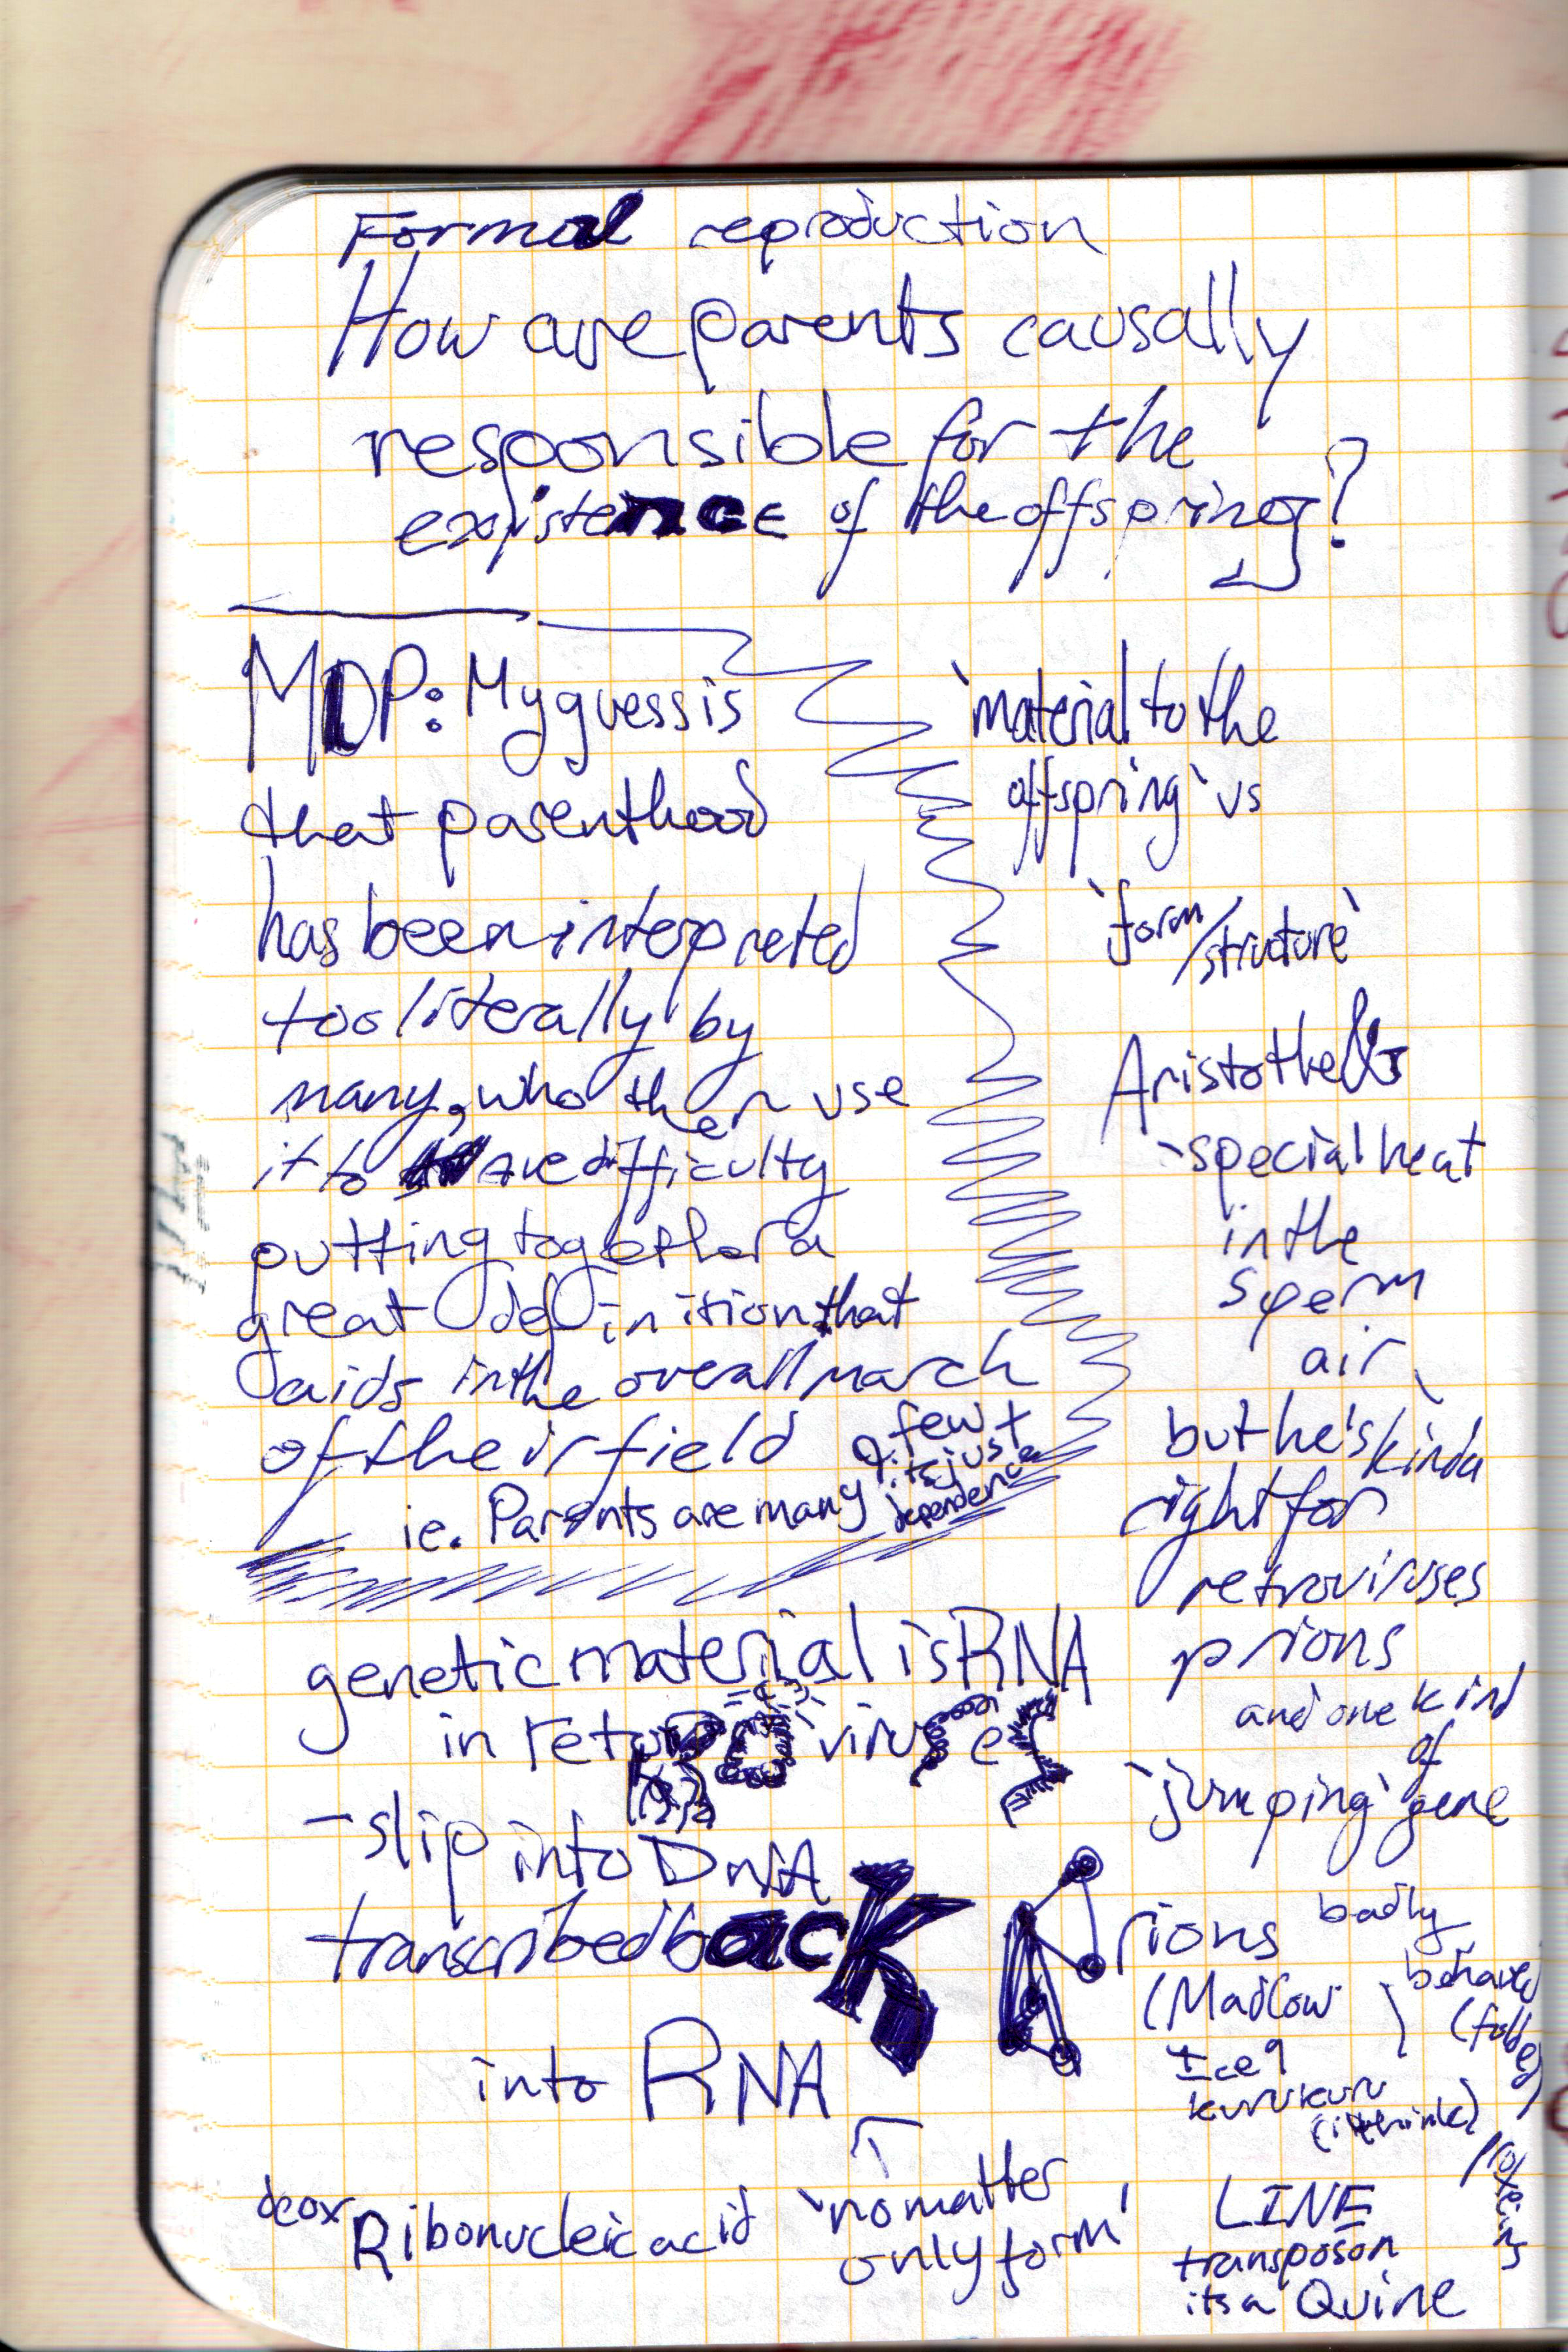 Formal reproduction
How are parents causally
responsible for the
existence of the offspring?
MDP: My guess is
that parenthood
has been interpreted
too literally by
many, who then use
it to ave difficulty
putting together a
great definition that
aids in the overall march
of their field
ie. Parents are many & few +
its just
dependence
'material to the
offspring' vs
'form
/structure'
Aristothe
-special heat
in the
sperm
air
but he's kinda
right for
retroviruses
prions
and one kind
of
'jumping' gene
genetic material is RNA
in retroviruses
- slip into DNA
transcribed back
into RNA
deoxRibonucleic acid
'no matter
only form'
Prions badly
behaved
(folded)
proteins
(Mad Cow
Ice 9
kuru kuru
(i think)
LINE
transposon
its a Quine